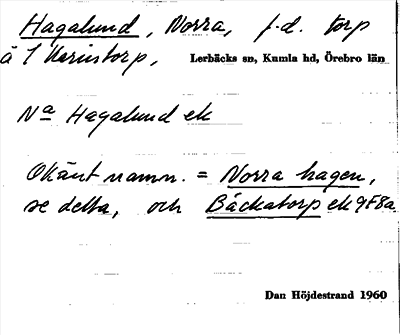 Hagalund, Norra, f.d. torp
å 1 Kerinstorp, Lerbäcks sn, Kumla hd, Örebro län
Na Hagalund ek
Okänt namn. = Norra hagen,
se detta, och Bäckatorp ek 9F8a.
Dan Höjdestrand 1960